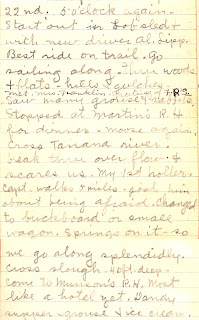 22nd. 5 o'clock again.
Start out in bobsled &
with new driver Al. Lipp.
Best ride on trail. Go
sailing along. Thru woods
& flats - hills & gulches.
Met Mrs. Franklin
Saw many grouse & rabbits.
Stopped at Martin's R.H.
for dinner. moose again.
Cross Tanana river.
break thru over flow &
scares us. My 1st holler.
Capt. walks 4 miles. josh him
about being afraid. changed
to buckboard or small
wagon. Springs on it - so
we go along splendidly.
Cross slough 4 ft. deep.
come to Munson's R.H. Most
like a hotel yet. Dandy
supper grouse & ice cream.